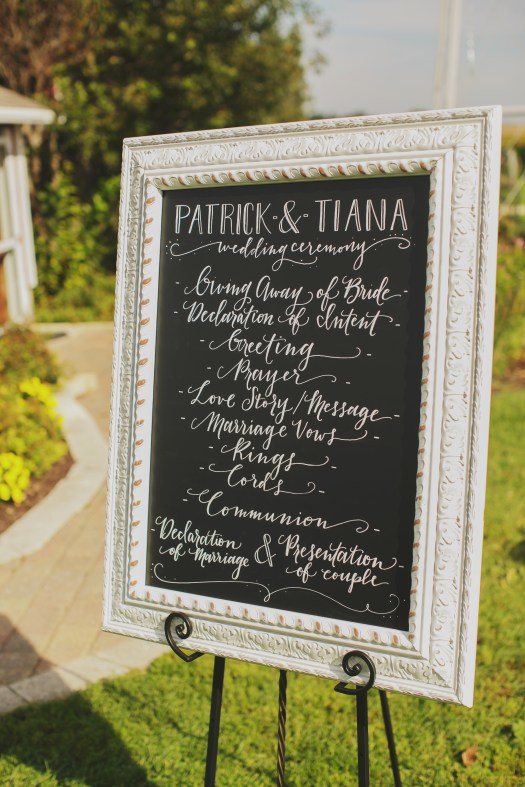 PATRICK · & · TIANA
wedding ceremony
- Giving Away of Bride -
- Declaration of Intent -
- Greeting -
- Prayer -
- Love Story/Message -
- Marriage Vows -
- Rings -
- Cords -
- Communion -
- Declaration of Marriage & Presentation of couple -